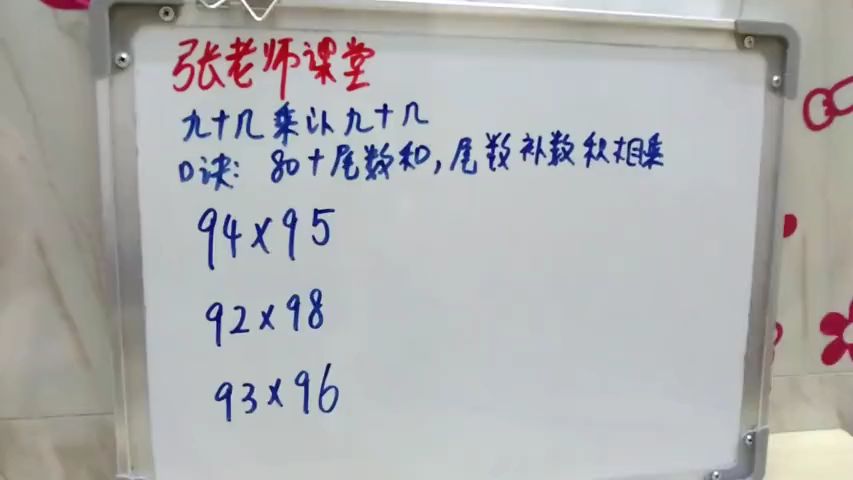 张老师课堂
九十几乘以九十几
口诀：80+尾数和，尾数补数积相乘
94×95
92×98
93×96